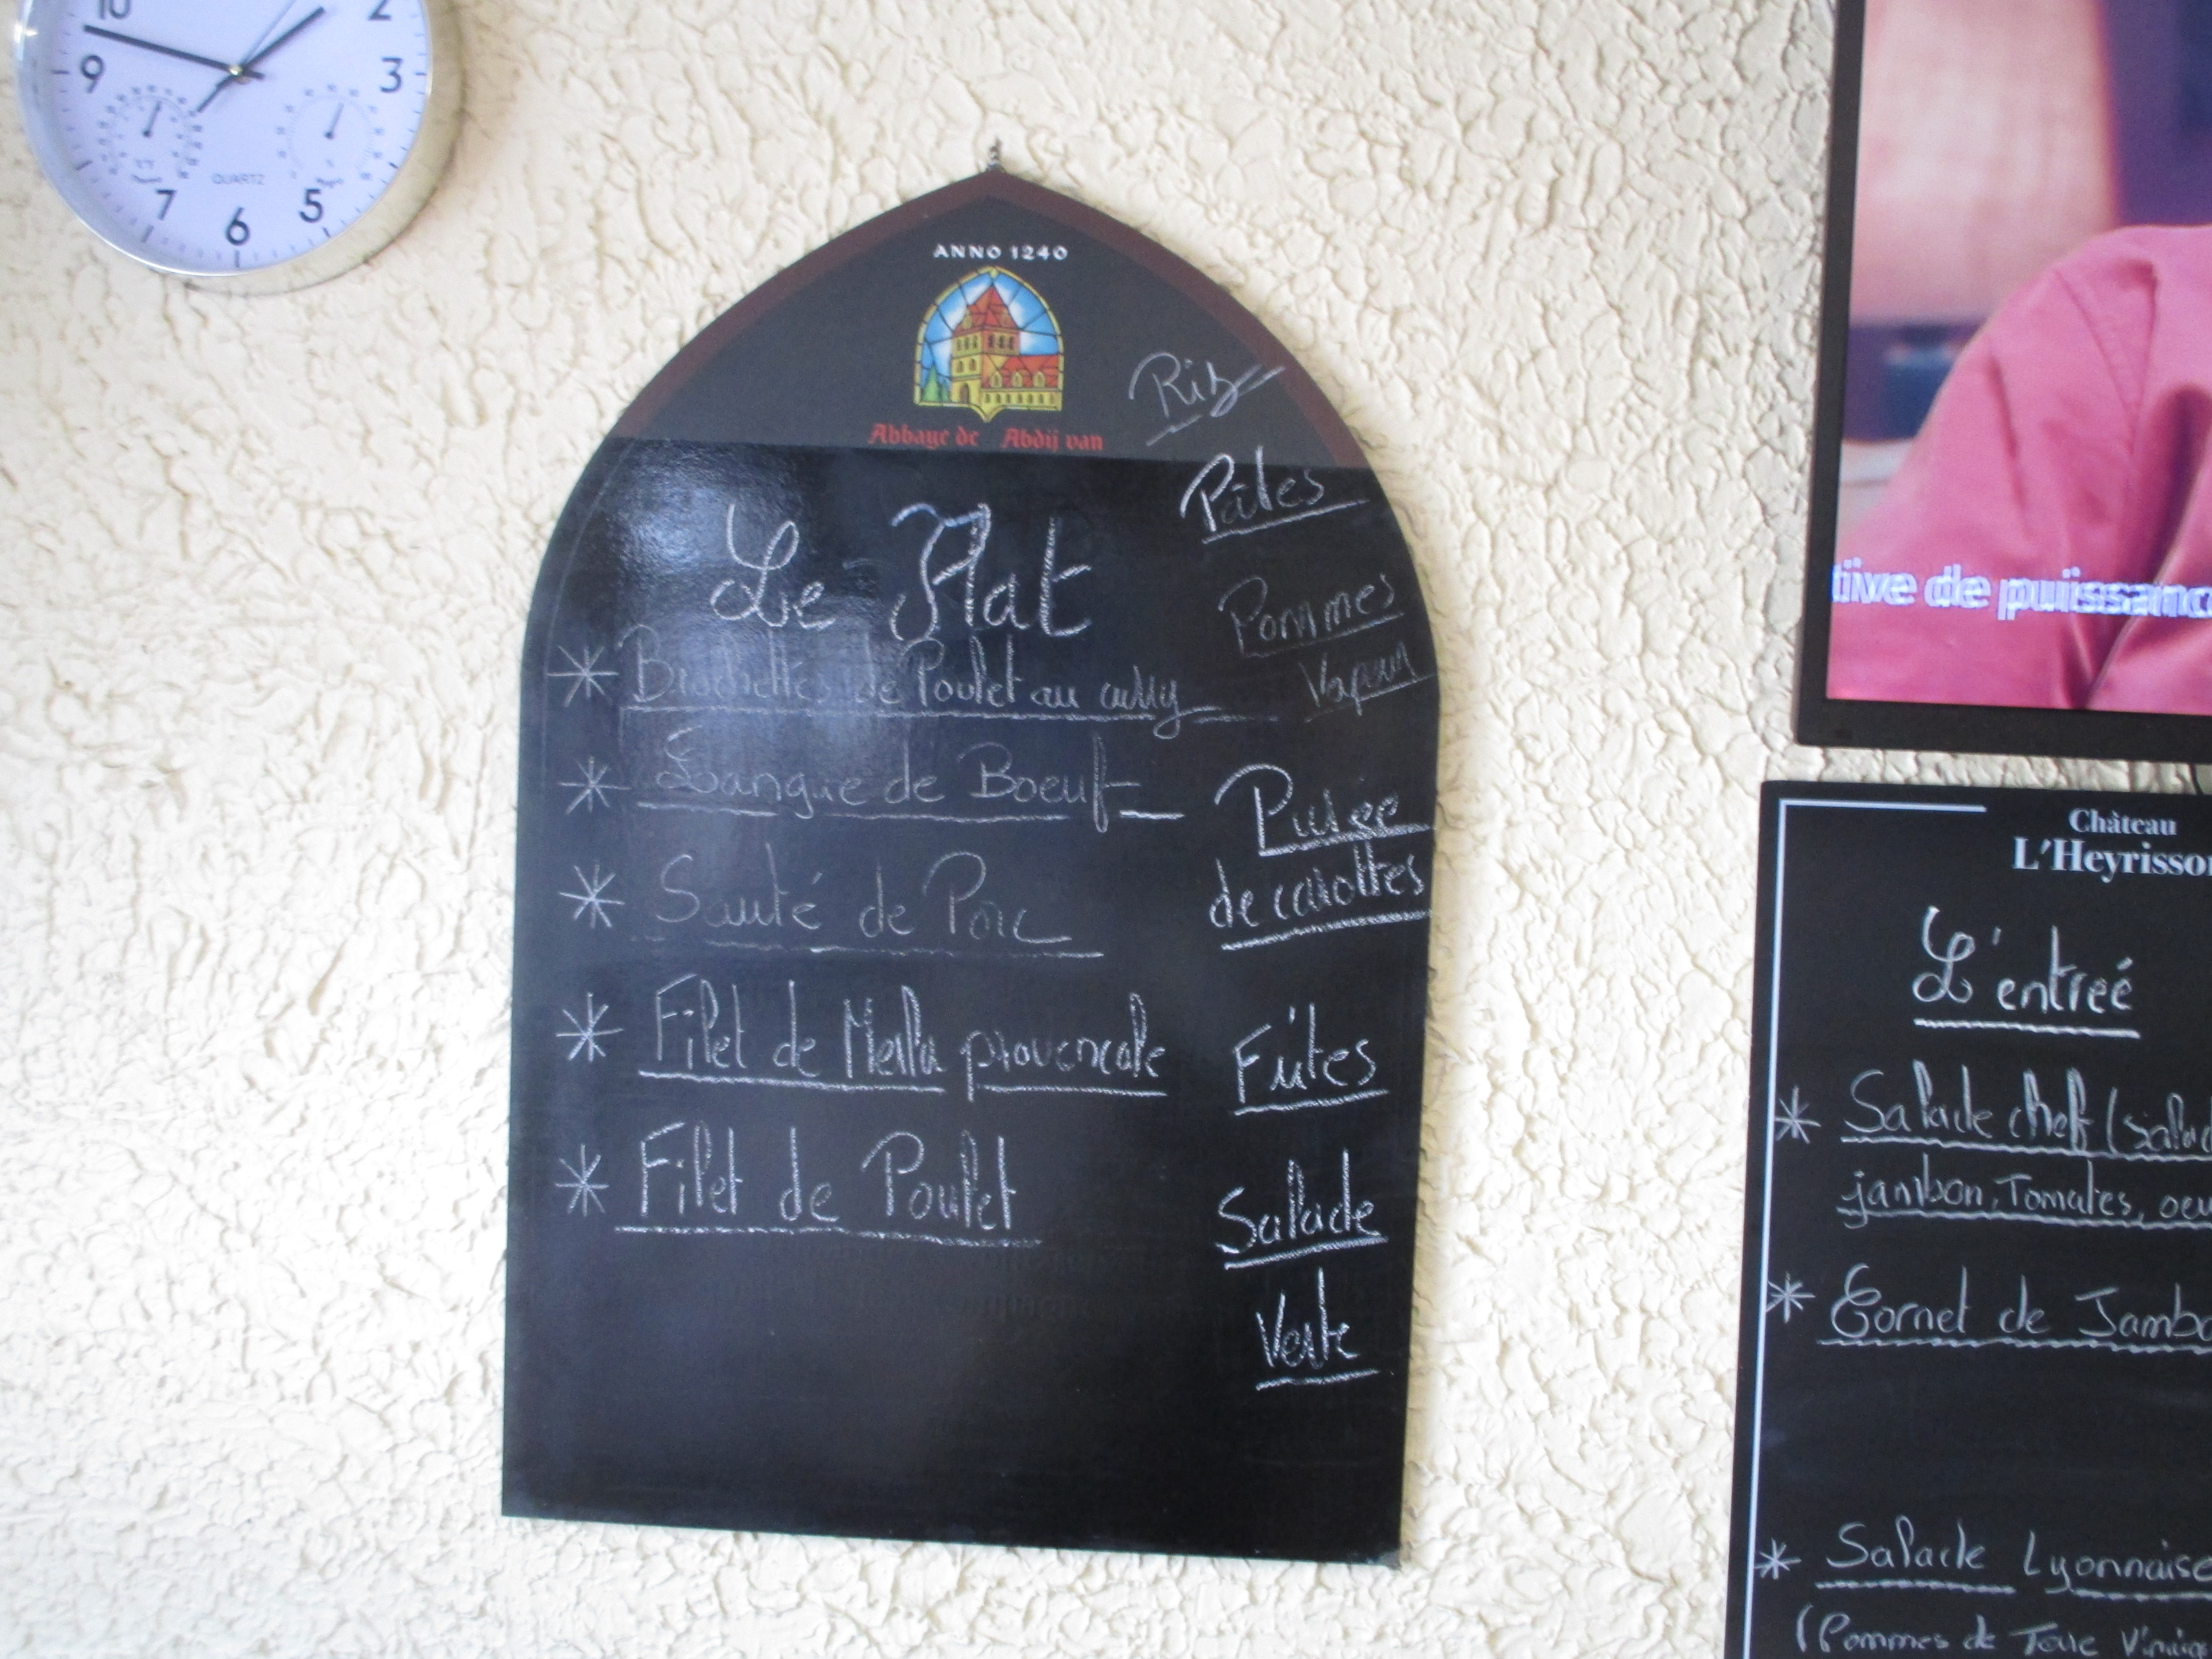 10
2
9
3
QUARTZ
7
5
6
ANNO 1240
Abbaye de Abdij van
Le Plat
* Brochettes de Poulet au curry
* Langue de Boeuf
* Sauté de Porc
* Filet de Merlu provencale
* Filet de Poulet
Riz
Pâtes
Pommes
Vapeur
Purée
de carottes
Frites
Salade
Verte
tive de puissanc
Château
L'Heyrisson
L'entreé
* Salade chef (salad
jambon, Tomates, oeu
* Cornet de Jambo
* Salade Lyonnaise
(Pommes de Terre